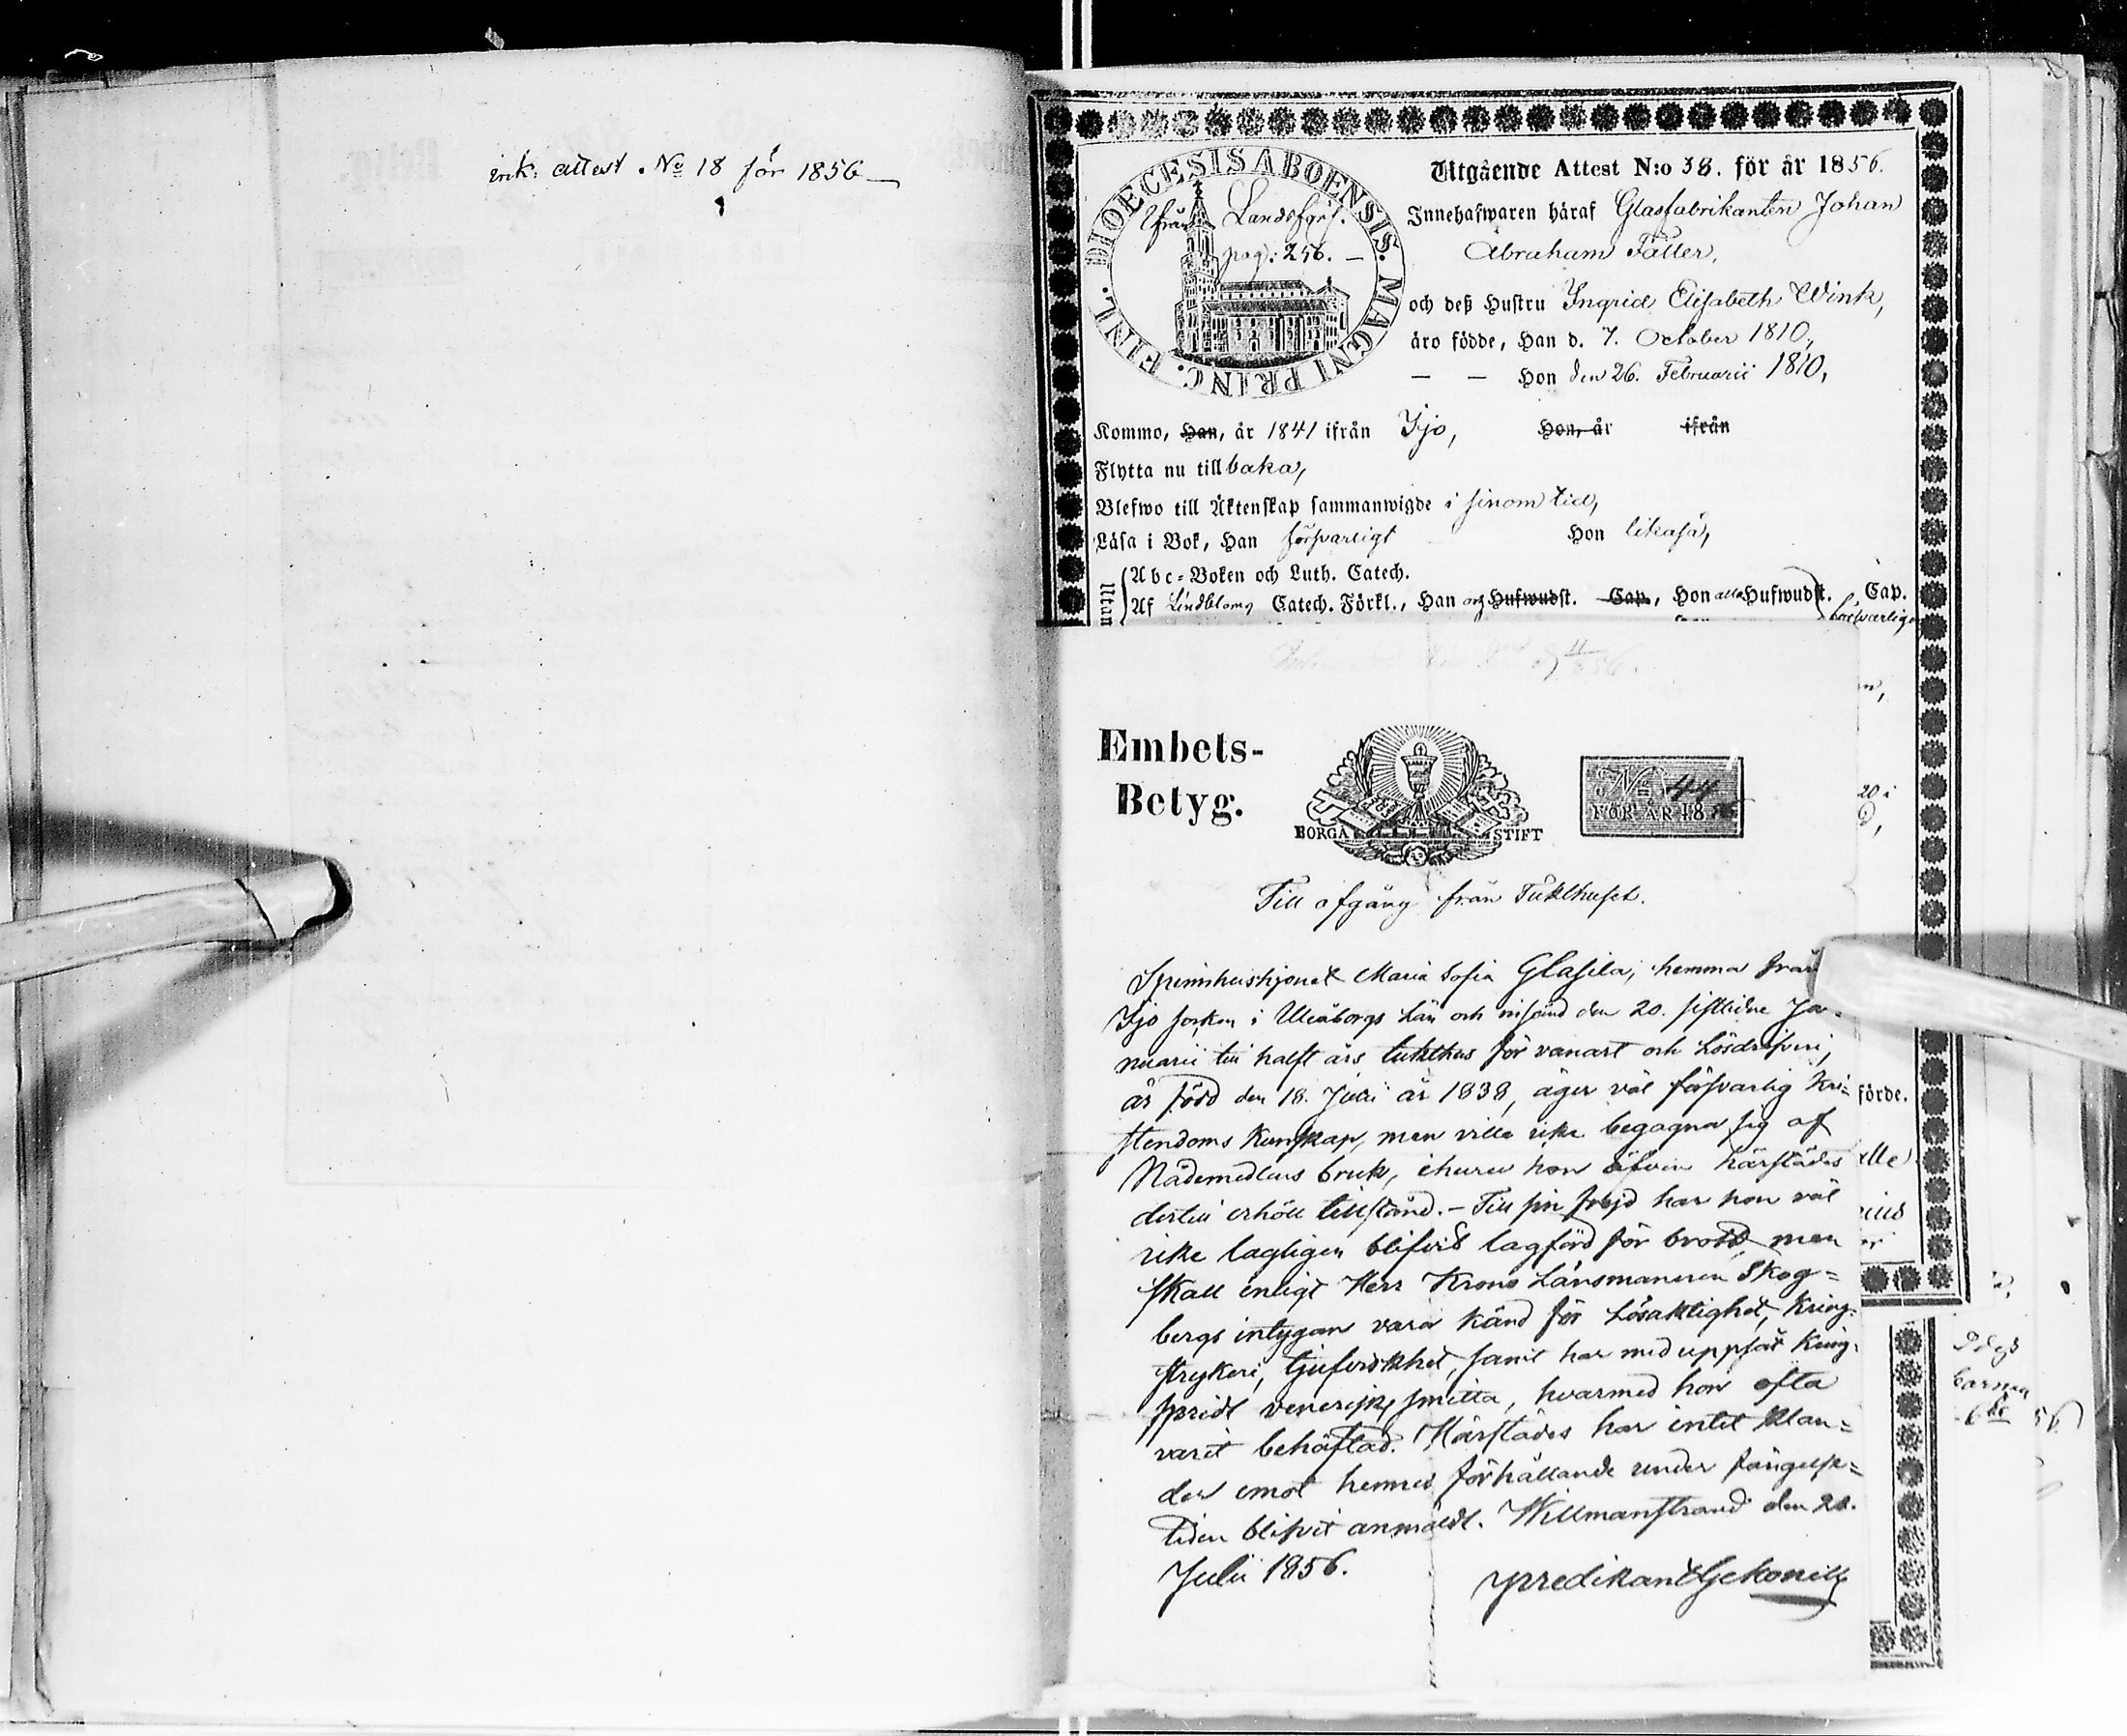 ink. attest. No 18 för 1856 —
DIOECESIS ABOENSIS. MAGNI PRINC. FINL.
Utgående Attest N:o 38. för år 1856.
ifrån Landsförs.
pag: 256. —
Innehafwaren häraf Glasfabrikanten Johan
Abraham Fäller,
och deß Hustru Ingrid Elisabeth Wink,
äro födde, Han d. 7. October 1810,
— — Hon den 26. Februarii 1810,
Kommo, Han, år 1841 ifrån Ijo, Hon, år ifrån
Flytta nu till baka,
Blefwo till Äktenskap sammanwigde i sinom tid,
Läsa i Bok, Han försvarligt Hon likaså,
Utan
Abc-Boken och Luth. Catech.
Af Lindbloms Catech. Förkl., Han och Hufwudst. Cap., Hon alla Hufwudst. Cap.
försvarligen
Embets-
Betyg.
BORGÅ STIFT
No 44
FÖR ÅR 1856
Till afgång från Tukthuset.
Spinnhushjonet Maria Sofia Glasila, hemma från
Ijo socken i Uleåborgs Län och insänd den 20. sistlidne Ja-
nuarii till halft års tukthus för vanart och Lösdrifveri,
är född den 18. Julii år 1838, äger väl försvarlig Kri-
stendoms Kunskap, men ville icke begagna sig af
Nådemedlens bruk, ehuru hon äfven härstädes
dertill erhöll tillstånd. — Till sin frejd har hon väl
icke lagligen blifvit lagförd för brott, men
skall enligt Herr Krono Länsmannen Skog-
bergs intygan vara känd för Lösaktighet, Kring-
strykeri, tjufverskhet, samt har med uppsåt Kring-
spridt venerisk smitta, hvarmed hon ofta
varit behäftad. Härstädes har intet klan-
der emot hennes förhållande under fängelse-
tiden blifvit anmäldt. Willmanstrand den 20.
Julii 1856.
förde.